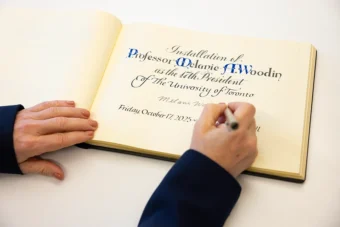 Installation of
Professor Melanie A. Woodin
as the 17th President
Of the University of Toronto
Melanie
Friday October 17, 2025